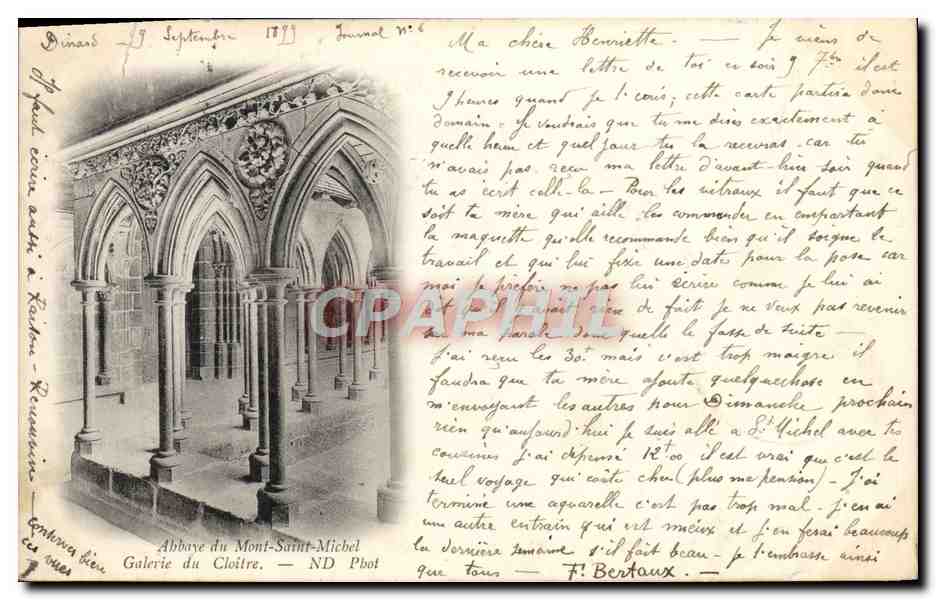 Dinard 9 Septembre 1899 Journal N° 6
Il faut écrire aussi à Raitone - Renounine -
conserver bien
ces vues
Ma chère Henriette. — Je viens de
recevoir une lettre de toi ce soir 9 7bre il est
9 heures quand je l'écris, cette carte partira donc
demain. Je voudrais que tu me dises exactement à
quelle heure et quel jour tu la recevras car tu
n'avais pas reçu ma lettre d'avant-hier soir quand
tu as écrit celle-là - Pour les vitraux il faut que ce
soit ta mère qui aille les commander en emportant
la maquette qu'elle recommande bien qu'il soigne le
travail et qui lui fixe une date pour la pose car
moi je préfère ne pas lui écrire comme je lui ai
dit rien de fait je ne veux pas revenir
sur ma parole donc quelle le fasse de suite —
J'ai reçu les 30f mais c'est trop maigre il
faudra que ta mère ajoute quelquechose en
m'envoyant les autres pour Dimanche prochain
rien qu'aujourd'hui je suis allé a St Michel avec tes
cousines j'ai dépensé 12f00 il est vrai que c'est le
seul voyage qui coûte cher (plus ma pension) - J'ai
terminé une aquarelle c'est pas trop mal - j'en ai
une autre entrain qui est mieux et j'en ferai beaucoup
la dernière semaine s'il fait beau - je t'embrasse ainsi
que tous — F. Bertaux. —
CPAPHIL
Abbaye du Mont-Saint-Michel
Galerie du Cloître. — ND Phot